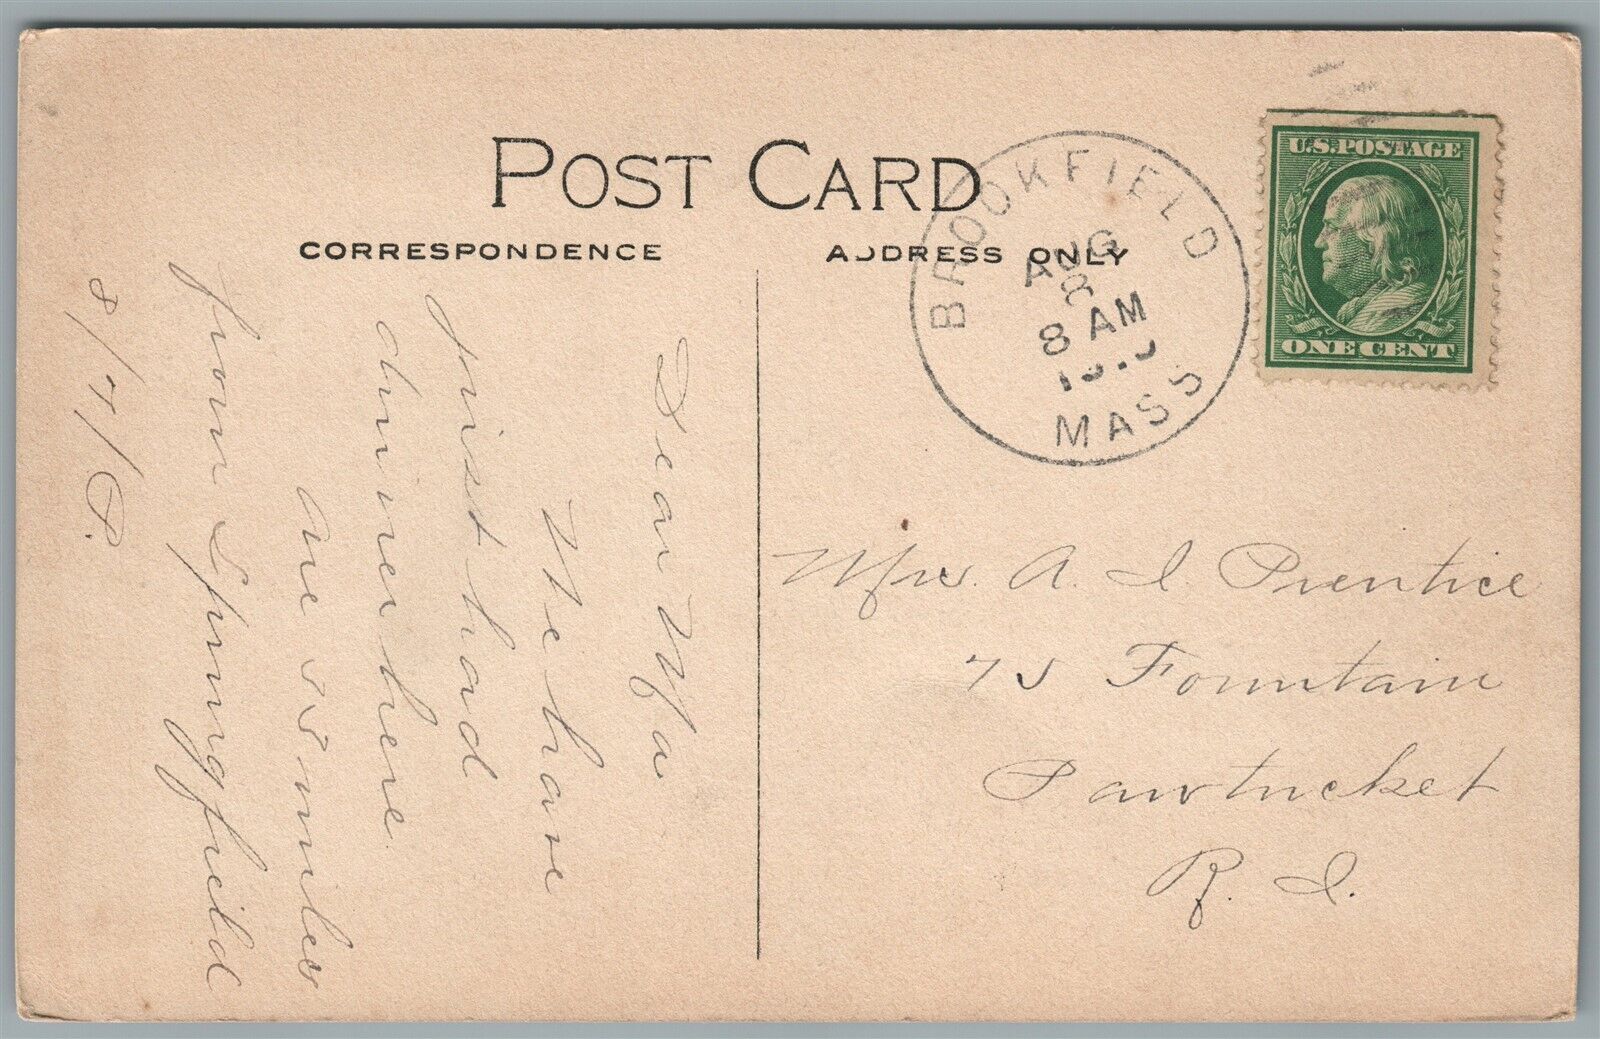 POST CARD
CORRESPONDENCE
ADDRESS ONLY
BROOKFIELD
AUG
8 AM
MASS
U.S. POSTAGE
ONE CENT
Dear Ma
We have
just had
dinner here.
Are 25 miles
from Springfield
8/7/
Mrs. A. I. Prentice
75 Fountain
Pawtucket
R. I.